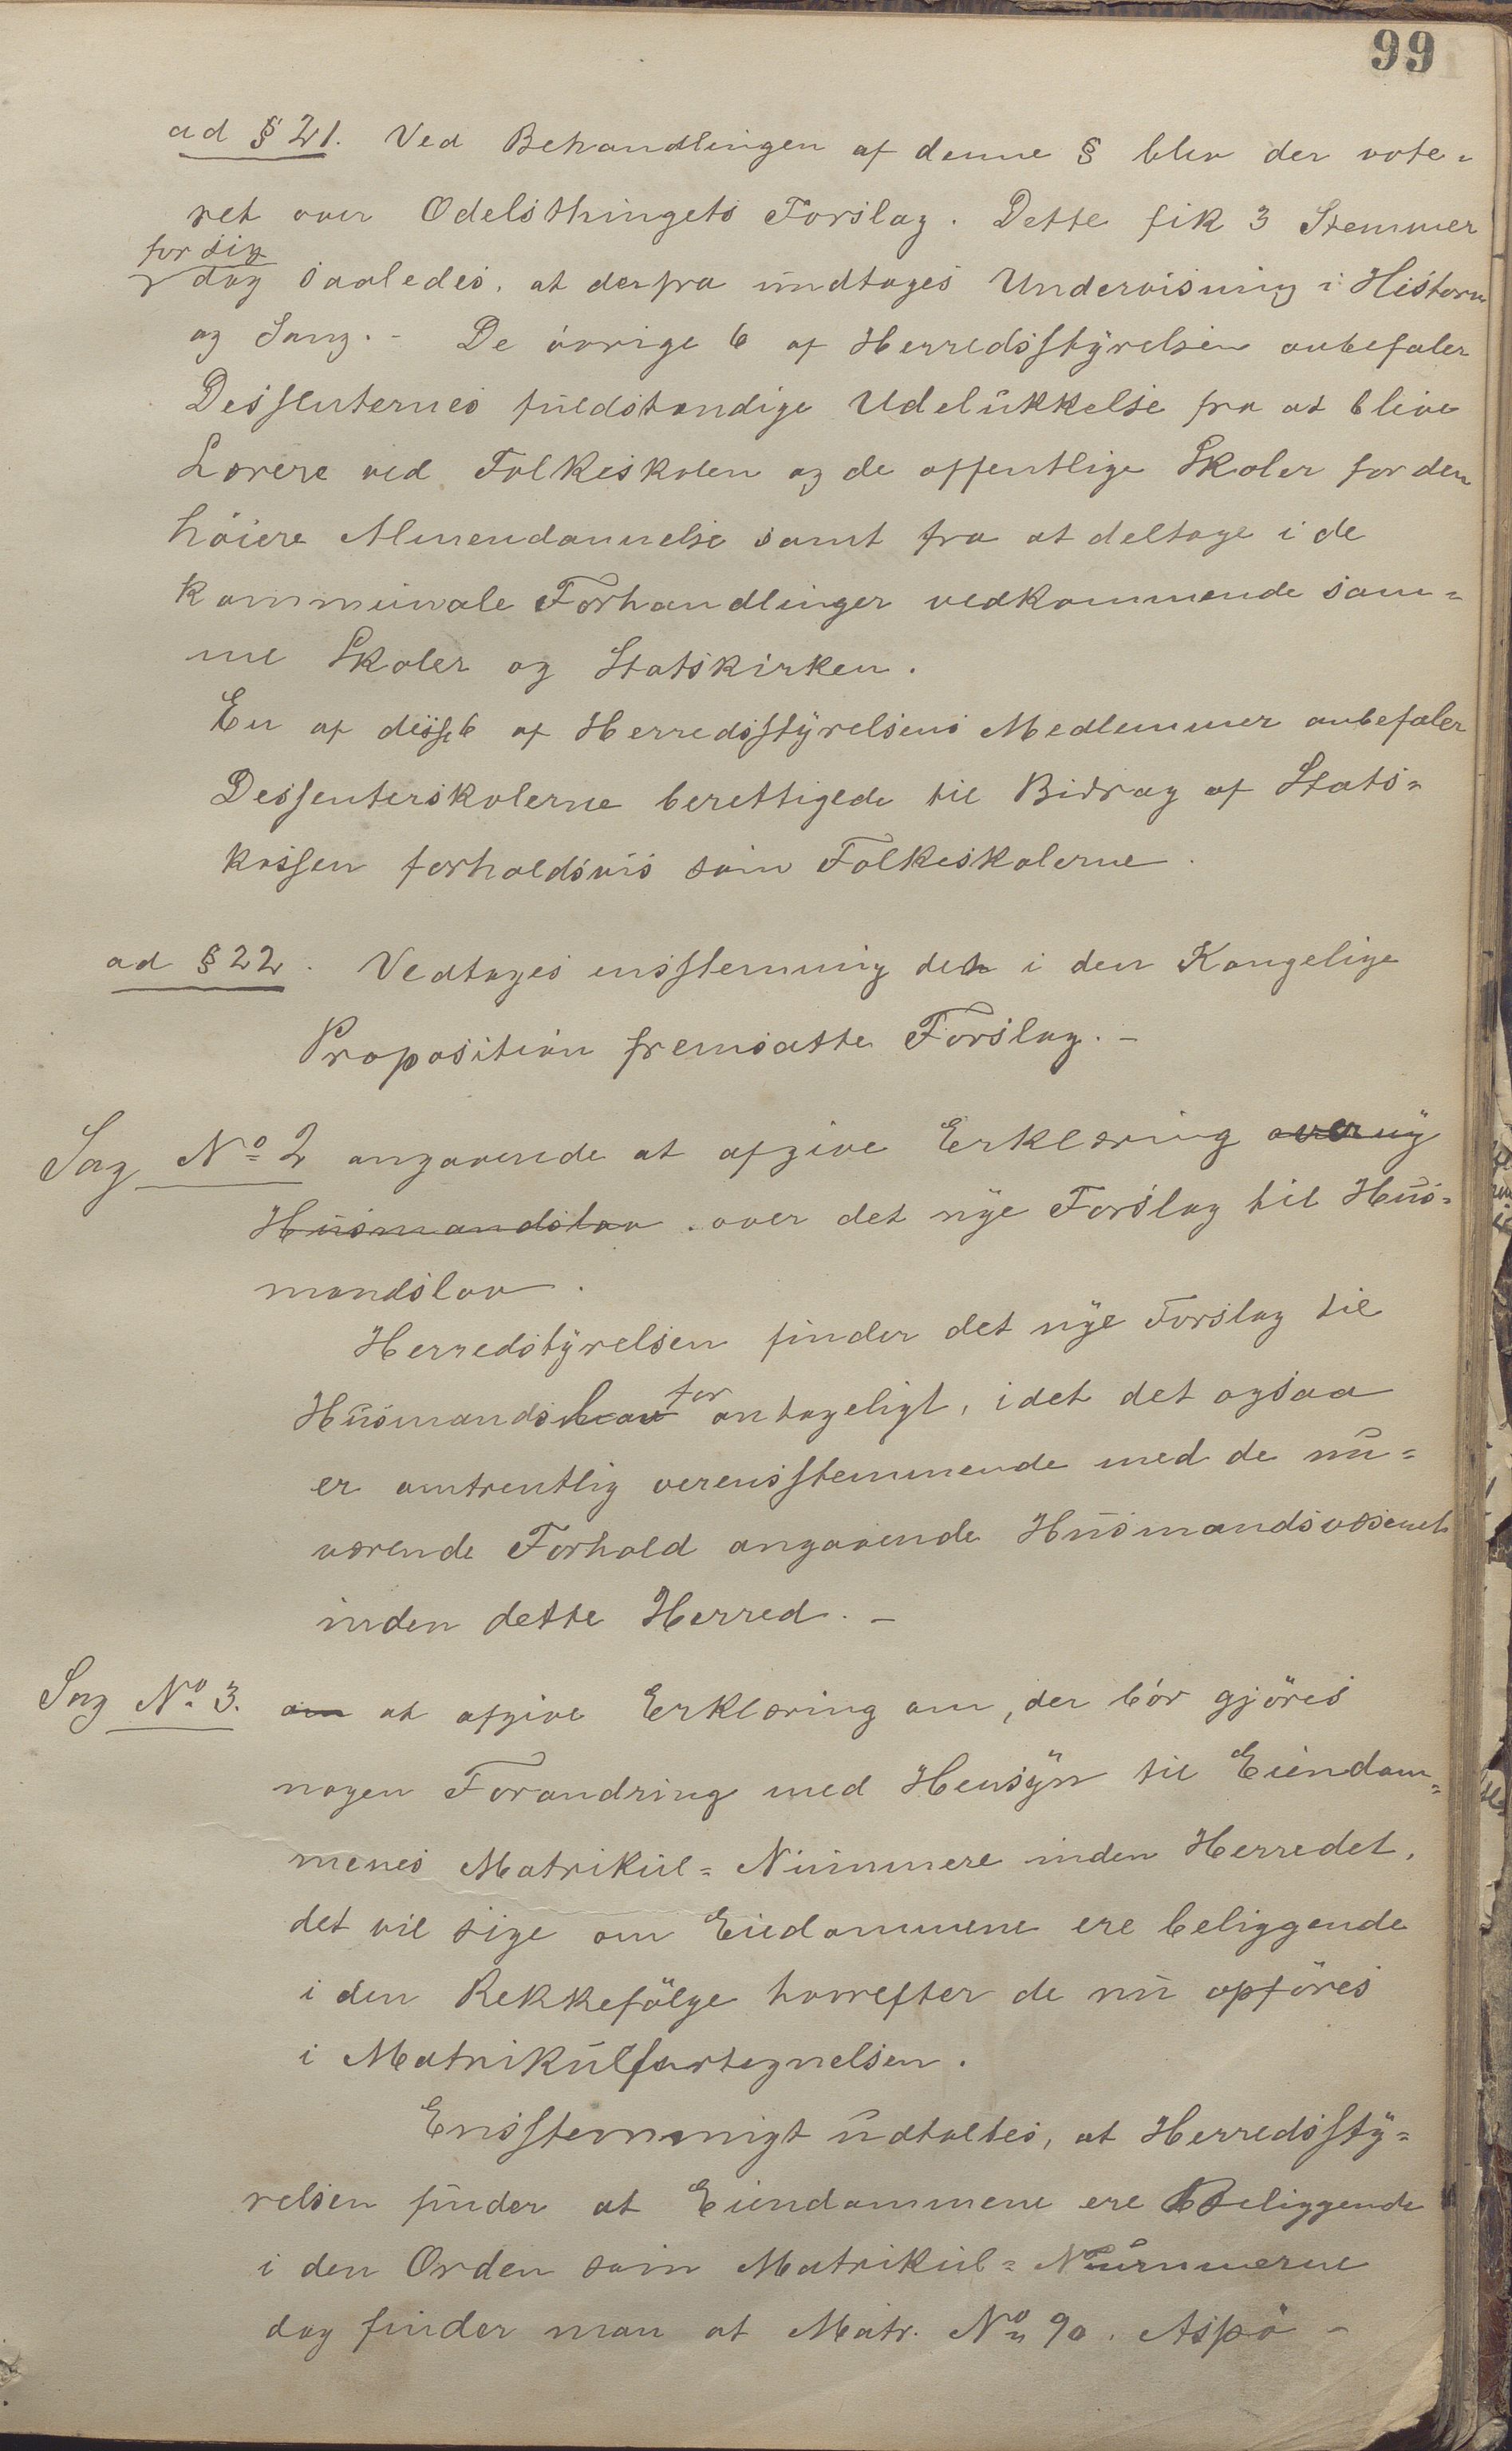 99
ad § 21. Ved Behandlingen af denne § blev der vote=
ret over Odelsthingets Forslag. Dette fik 3 Stemmer
for sig
dog saaledes, at derfra undtages Undervisning i Historie
og Sang. - De övrige 6 af Herredsstyrelsen anbefaler
Dessenternes fuldstændige Udelukkelse fra at blive
Lærere ved Folkeskolen og de offentlige Skoler for den
höiere Almendannelse samt fra at deltage i de
kommunale Forhandlinger vedkommende sam=
me Skoler og Statskirken.
En af disse 6 af Herredsstyrelsens Medlemmer anbefaler
Dessenterskolerne berettigede til Bidrag af Stats=
kassen forholdsvis som Folkeskolerne.
ad § 22. Vedtages enstemmig det i den Kongelige
Proposition fremsatte Forslag. -
Sag No 2 angaaende at afgive Erklæring over ny
Husmandslov . over det nye Forslag til Hus=
mandslov.
Herredstyrelsen finder det nye Forslag til
Husmandslov for antageligt, idet det ogsaa
er omtrentlig overensstemmende med de nu=
værende Forhold angaaende Husmandsvæsenet
inden dette Herred. -
Sag No 3. om at afgive Erklæring om, der bör gjöres
nogen Forandring med Hensyn til Eiendom=
menes Matrikul= Nummere inden Herredet,
det vil sige om Eiedommene ere beliggende
i den Rekkefölge hvorefter de nu opföres
i Matrikulfortegnelsen.
Ensstemmigt udtaltes, at Herredssty=
relsen finder at Eiendommene ere Beliggende
i den Orden som Matrikul= Nummerne
dog finder man at Matr. No 90. Aspö -